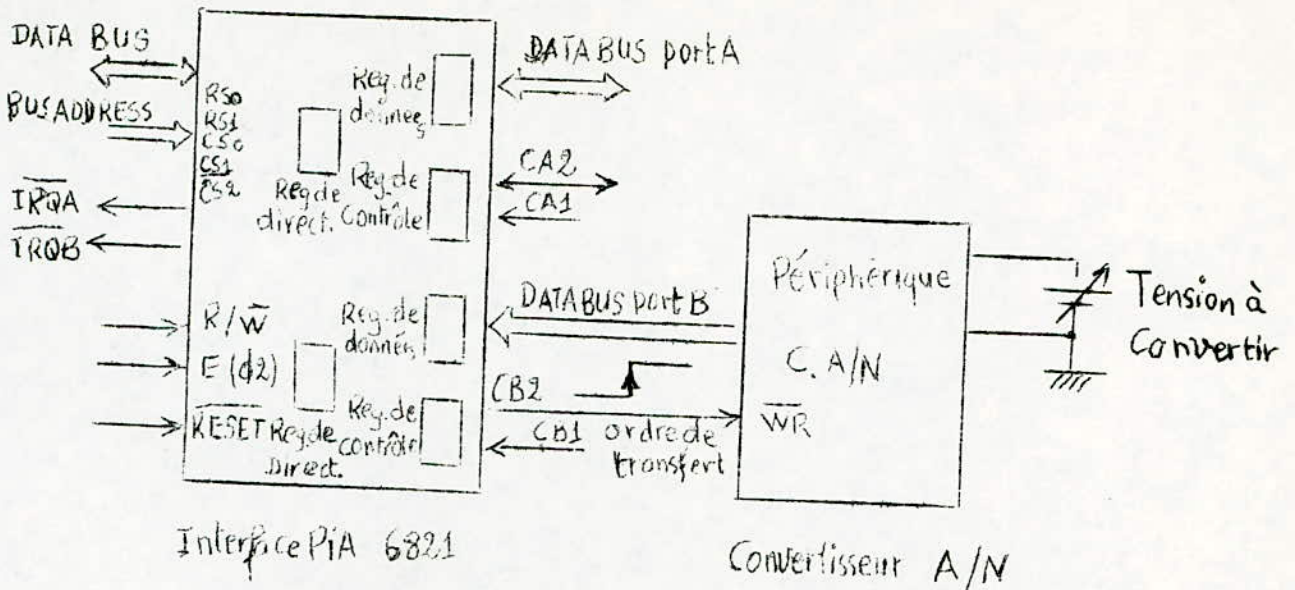 DATA BUS
BUS ADDRESS
IRQA
IRQB
RS0
RS1
CS0
CS1
CS2
R/W
E (ϕ2)
RESET
Reg. de
données
Reg. de
direct.
Reg. de
Contrôle
Reg. de
données
Reg. de
contrôle
Reg. de
Direct.
DATA BUS port A
CA2
CA1
DATA BUS port B
CB2
CB1 ordre de
transfert
Périphérique
C. A/N
WR
Tension à
Convertir
Interface PiA 6821
Convertisseur A/N